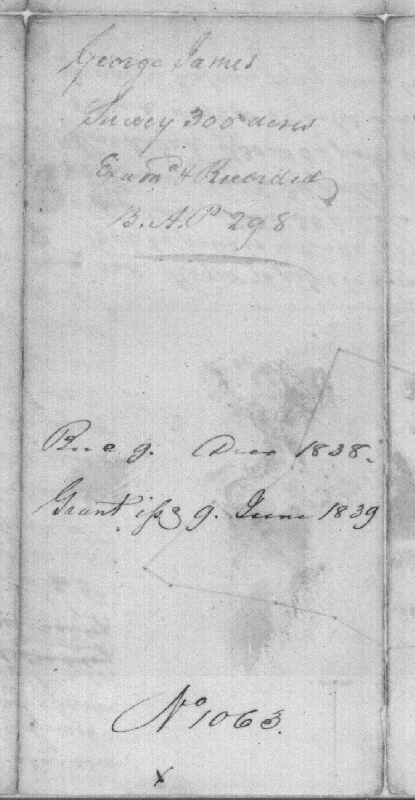 George James
Survey 300 acres
Examd & Recorded
B. A. P 298
Rec 9. Decr 1838.
Grant iss 9. June 1839
No 1063.
x